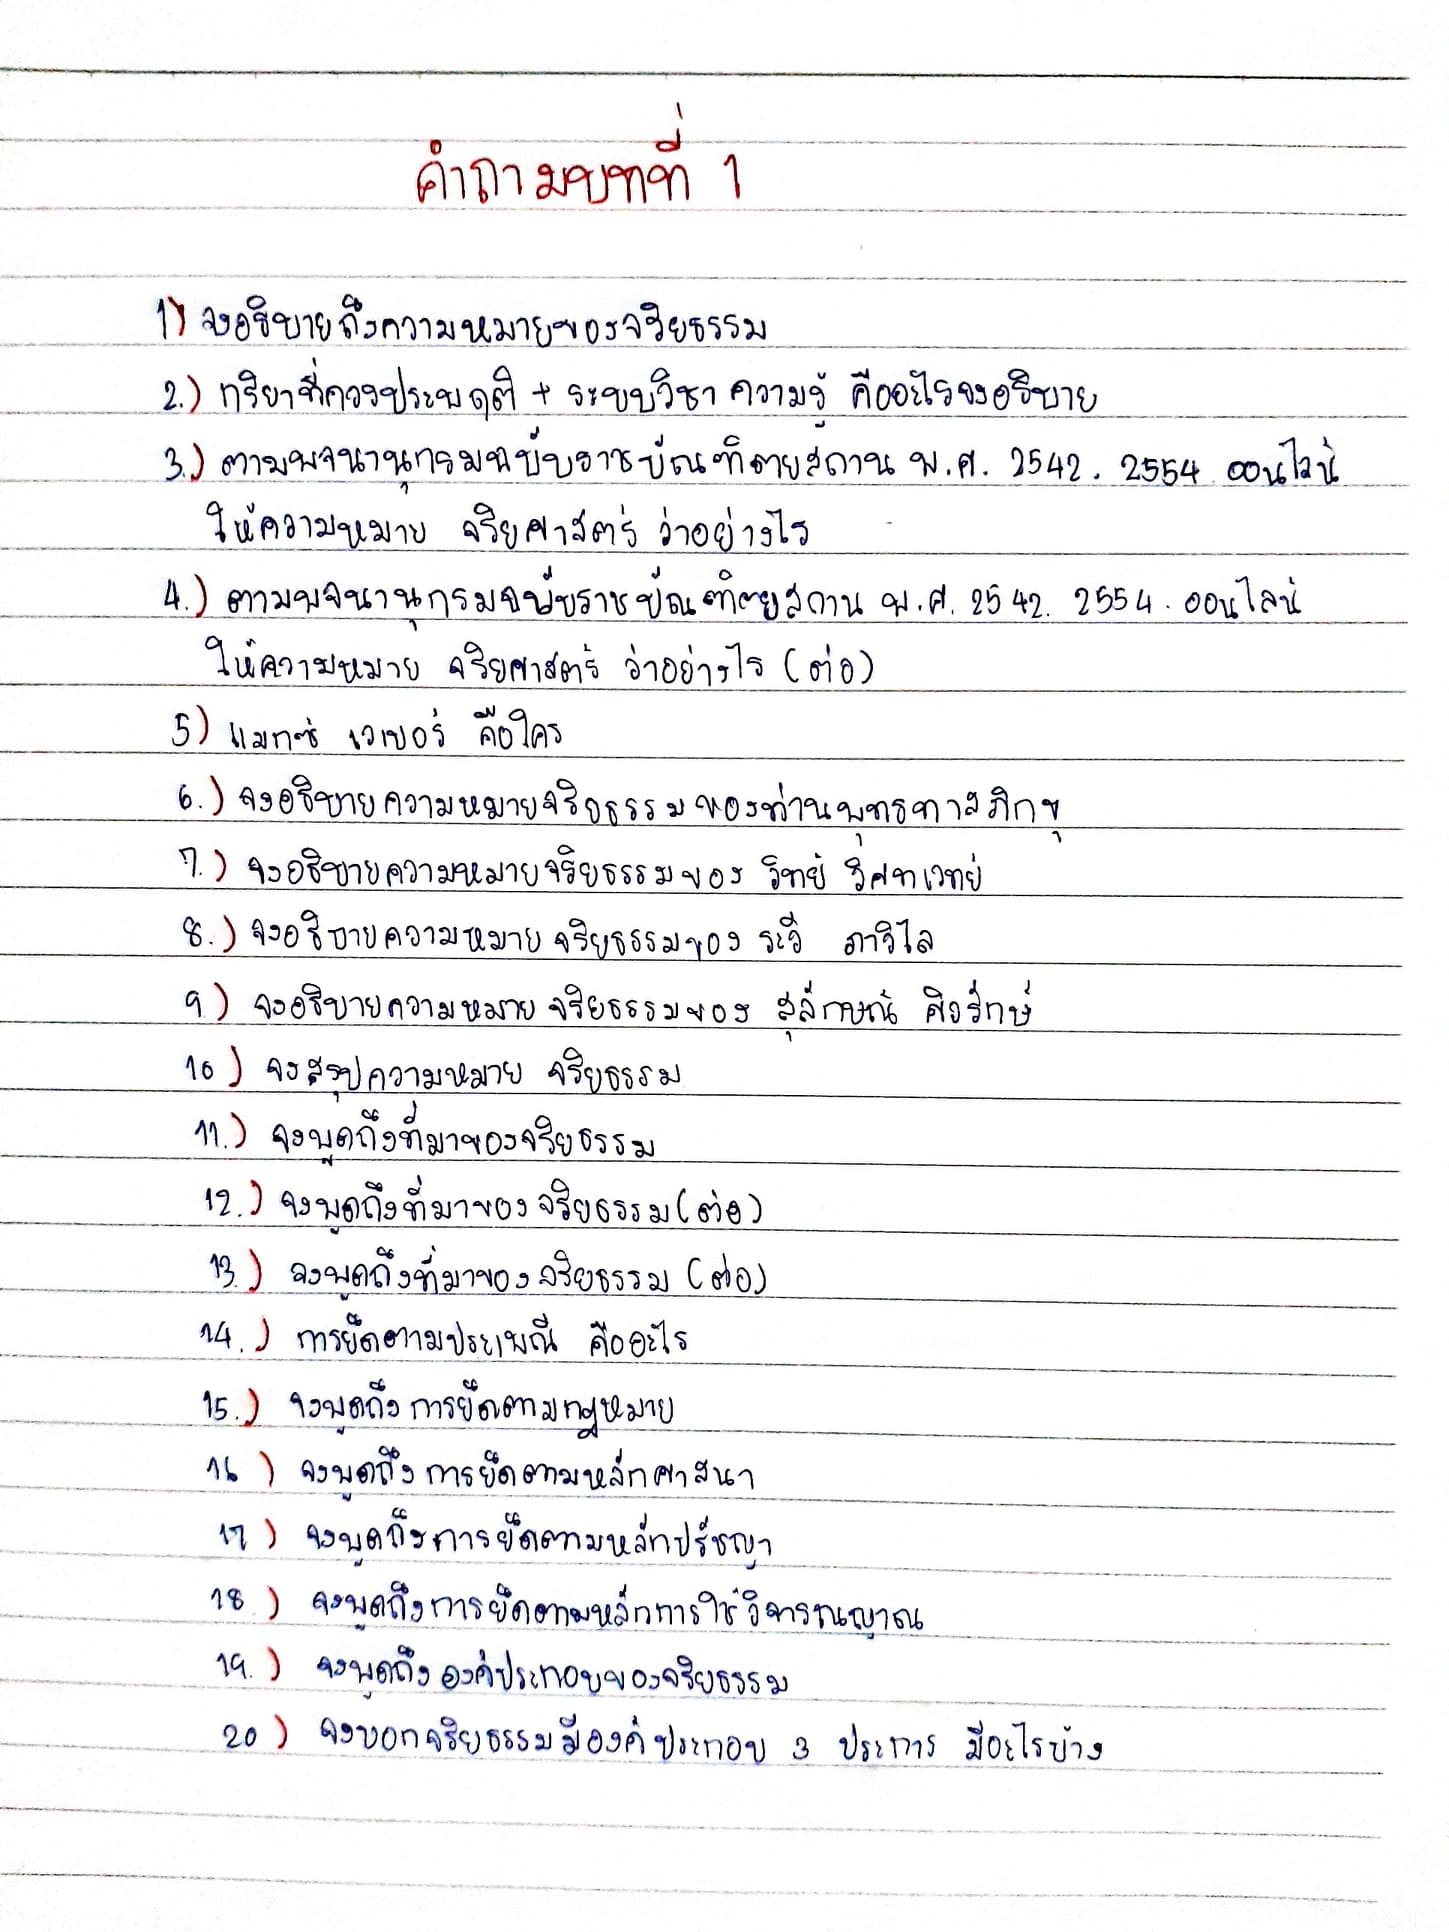 คำถามบทที่ 1
1) จงอธิบายถึงความหมายของจริยธรรม
2.) กริยาที่ควรประพฤติ + ระบบวิชา ความรู้ คืออะไรจงอธิบาย
3.) ตามพจนานุกรมฉบับราชบัณฑิตยสถาน พ.ศ. 2542. 2554 ออนไลน์
ให้ความหมาย จริยศาสตร์ ว่าอย่างไร
4.) ตามพจนานุกรมฉบับราชบัณฑิตยสถาน พ.ศ. 2542. 2554. ออนไลน์
ให้ความหมาย จริยศาสตร์ ว่าอย่างไร (ต่อ)
5) แมกซ์ เวเบอร์ คือใคร
6.) จงอธิบายความหมายจริยธรรมของท่านพุทธทาสภิกขุ
7.) จงอธิบายความหมายจริยธรรมของ วิทย์ วิศทเวทย์
8.) จงอธิบายความหมายจริยธรรมของ ระวี ภาวิไล
9) จงอธิบายความหมาย จริยธรรมของ สุลักษณ์ ศิวรักษ์
10) จงสรุปความหมาย จริยธรรม
11.) จงพูดถึงที่มาของจริยธรรม
12.) จงพูดถึงที่มาของ จริยธรรม (ต่อ)
13.) จงพูดถึงที่มาของ จริยธรรม (ต่อ)
14.) การยึดตามประเพณี คืออะไร
15.) จงพูดถึง การยึดตามกฎหมาย
16) จงพูดถึง การยึดตามหลักศาสนา
17) จงพูดถึงการยึดตามหลักปรัชญา
18.) จงพูดถึงการยึดตามหลักการใช้วิจารณญาณ
19.) จงพูดถึง องค์ประกอบของจริยธรรม
20) จงบอกจริยธรรมมีองค์ประกอบ 3 ประการ มีอะไรบ้าง